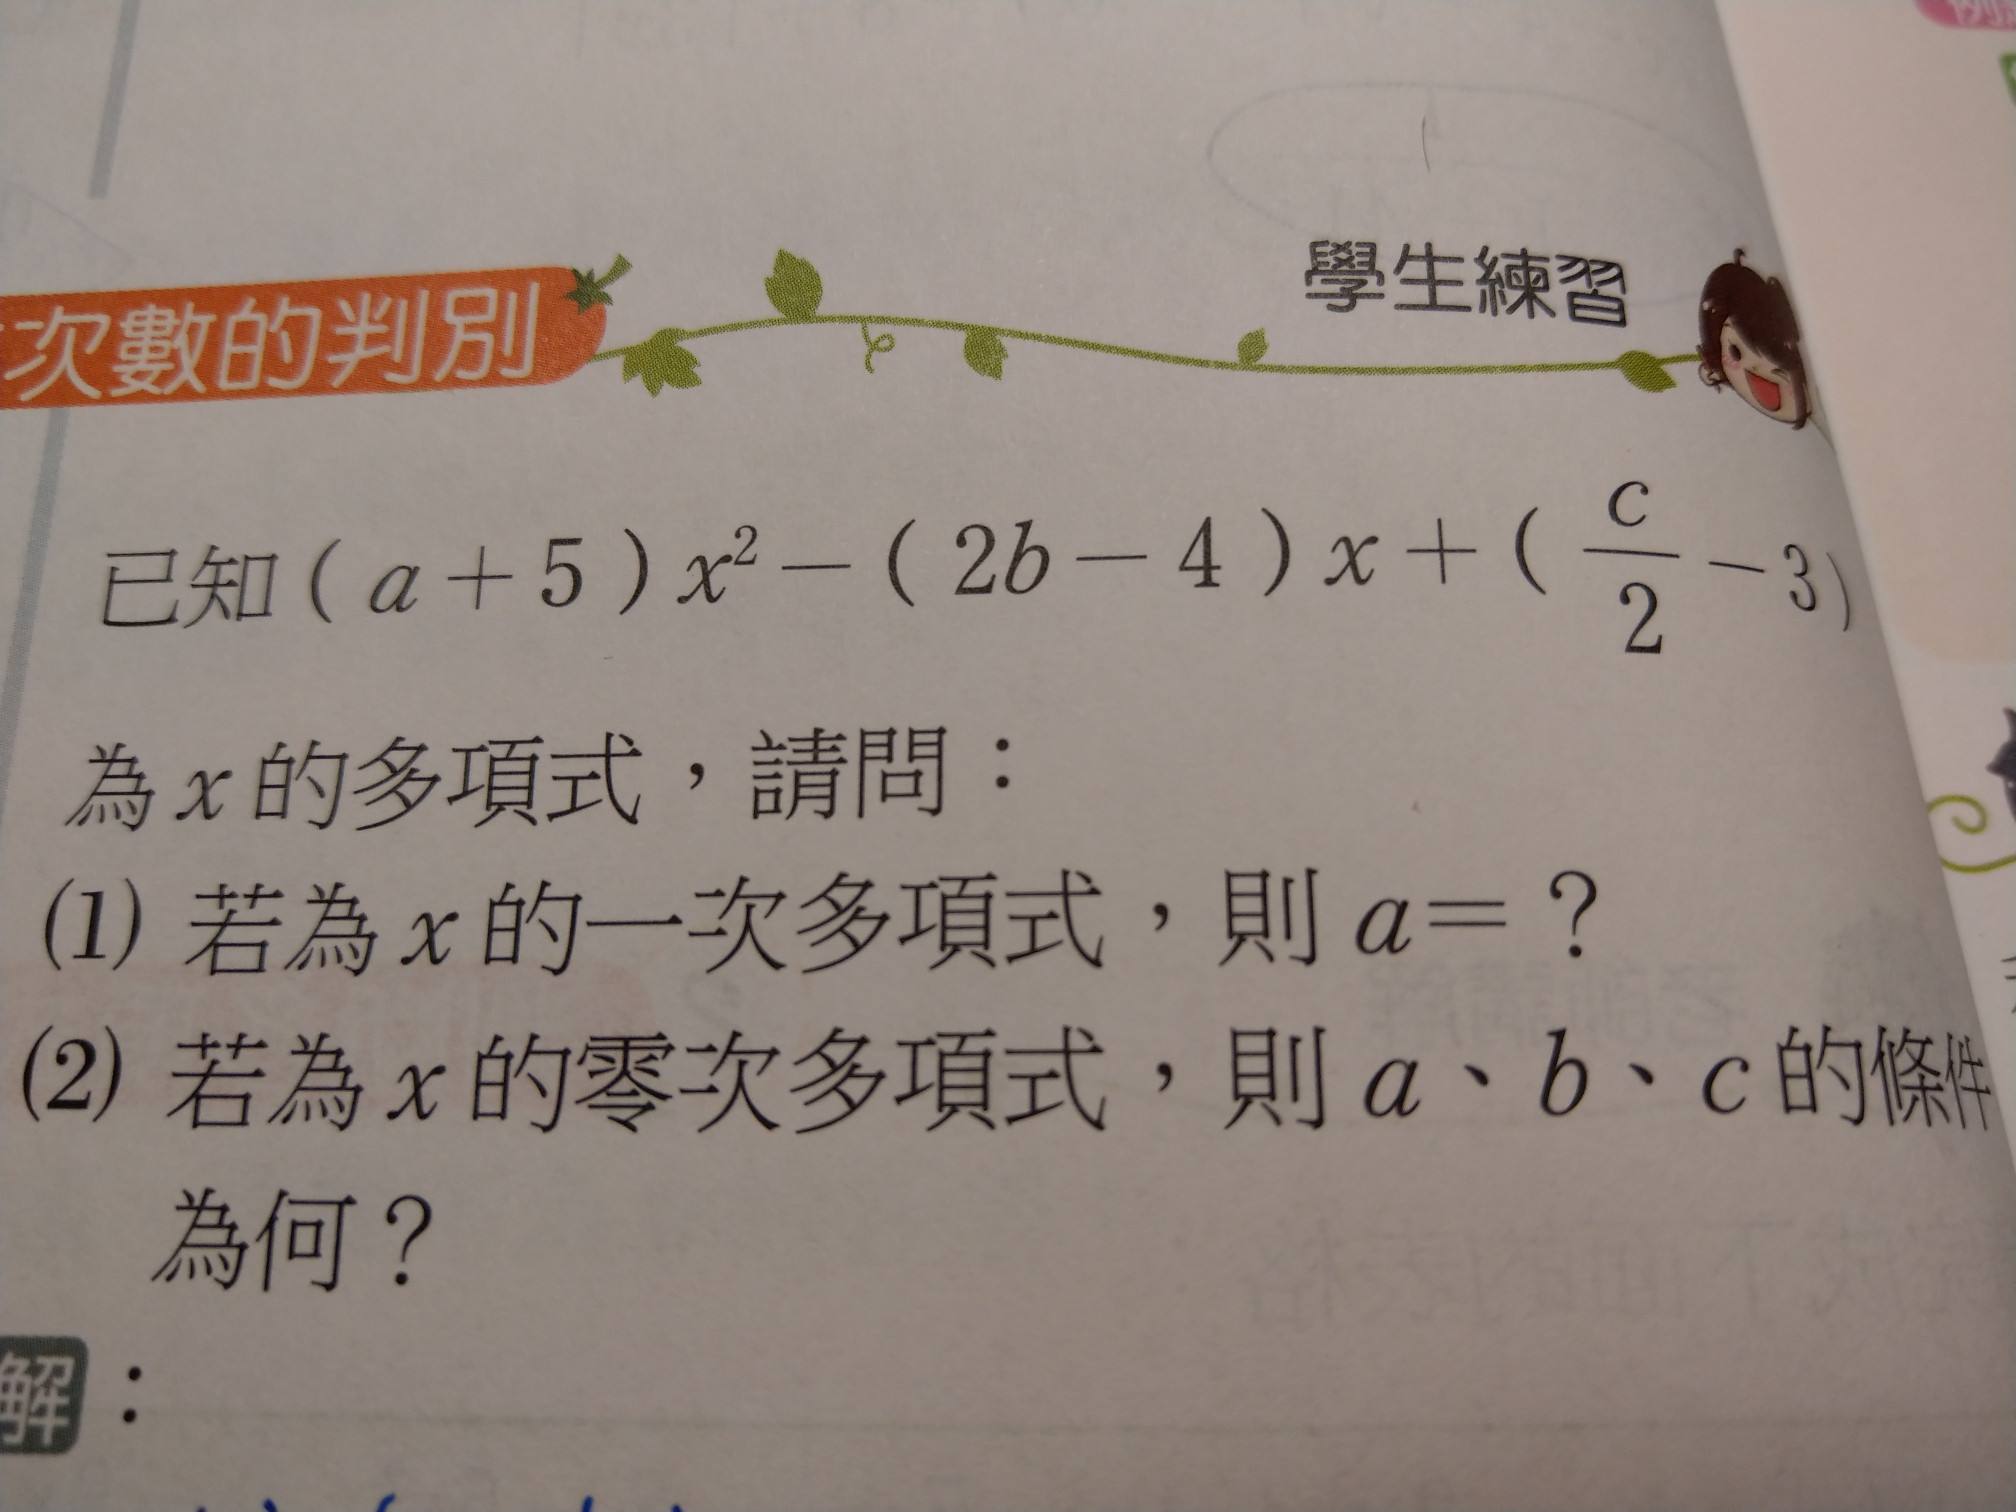 學生練習
次數的判別
已知(a+5)x²-(2b-4)x+(c/2-3)
為x的多項式，請問：
(1) 若為x的一次多項式，則a=？
(2) 若為x的零次多項式，則a、b、c的條件
為何？
解：